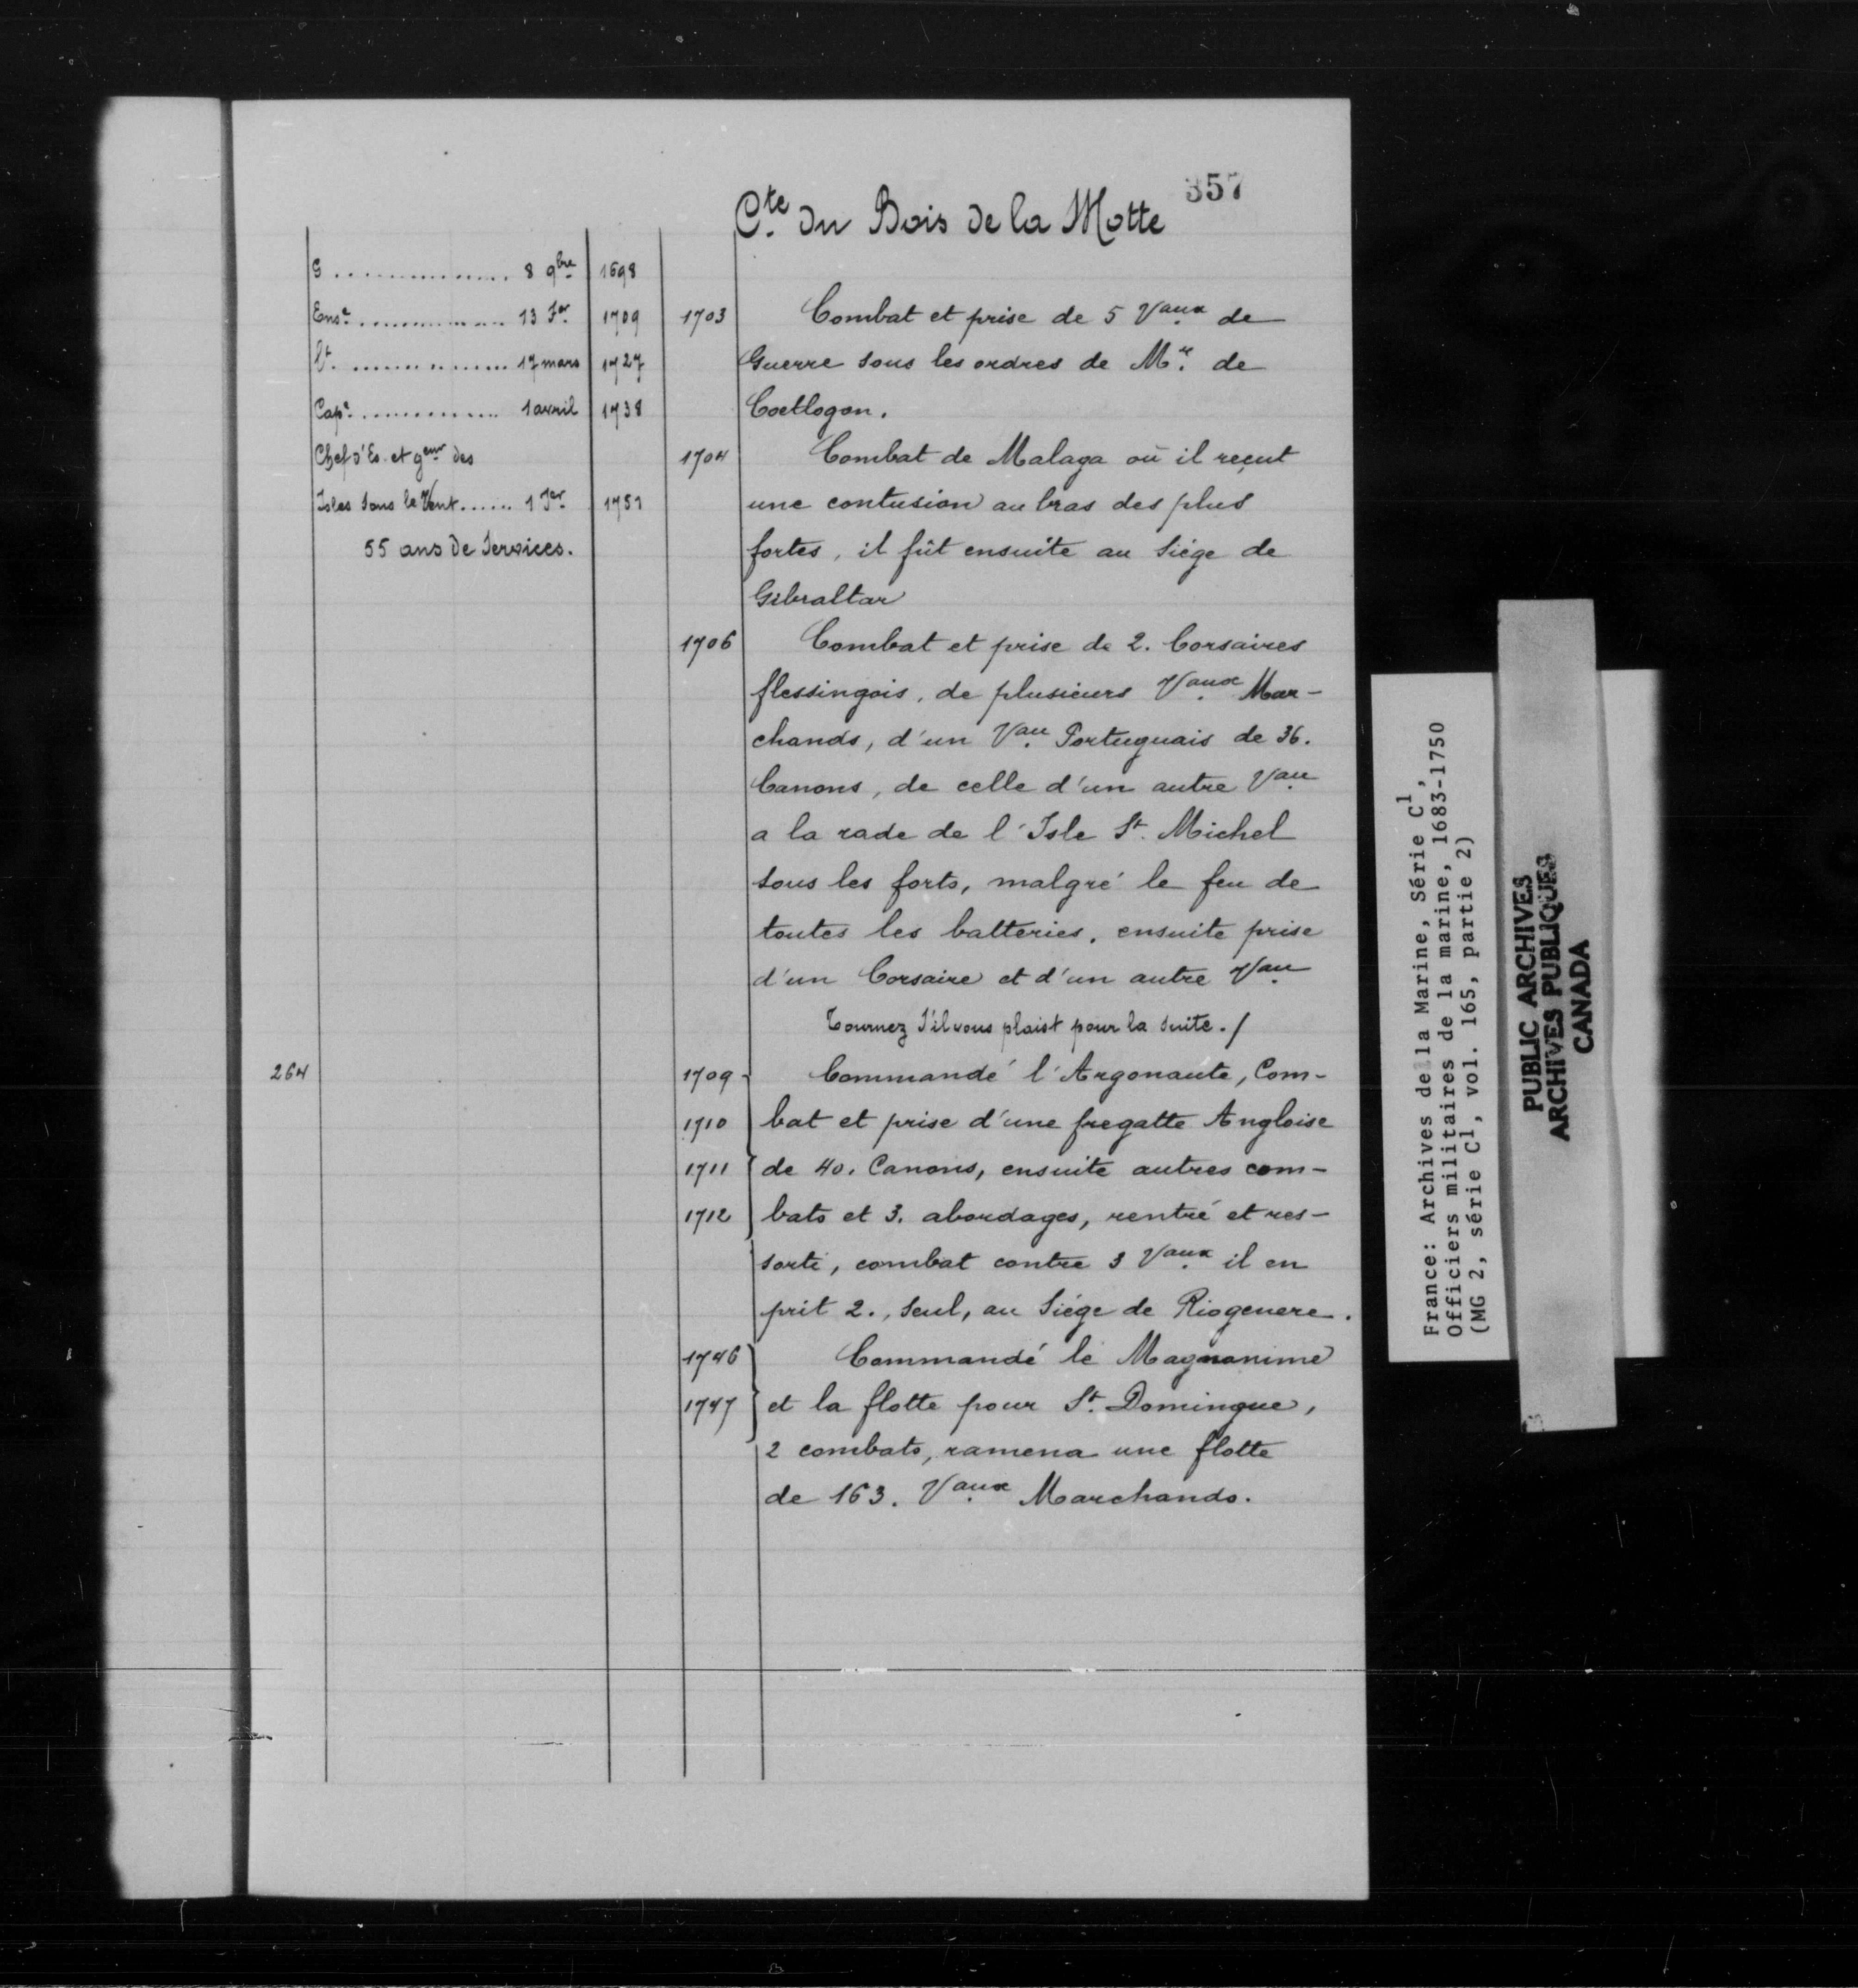 357
Cte. du Bois de la Motte
G ............... 8 9bre 1698
Ense. ............. 13 Jer. 1709
Lt. ............... 17 mars 1727
Cape. ............ 1 avril 1738
Chef d'Es. et geur. des
Isles sous le Vent ...... 1 Jer. 1751
55 ans de Services.
1703 Combat et prise de 5 Vaux. de
Guerre sous les ordres de Mr. de
Coetlogon.
1704 Combat de Malaga où il reçut
une contusion au bras des plus
fortes, il fût ensuite au Siége de
Gibraltar
1706 Combat et prise de 2. Corsaires
flessingois, de plusieurs Vaux. Mar-
chands, d'un Vau. Portuguais de 36.
Canons, de celle d'un autre Vau.
a la rade de l'Isle St. Michel
sous les forts, malgré le feu de
toutes les batteries, ensuite prise
d'un Corsaire et d'un autre Vau.
Tournez S'il vous plaist pour la suite./
264 1709 Commandé l'Argonaute, Com-
1710 bat et prise d'une fregatte Angloise
1711 de 40. Canons, ensuite autres com-
1712 bats et 3. abordages, rentré et res-
sorti, combat contre 3 Vaux. il en
prit 2., seul, au Siége de Riogenere.
1746 Commandé le Magnanime
1747 et la flotte pour St. Domingue,
2 combats, ramena une flotte
de 163. Vaux. Marchands.
France: Archives de la Marine, Série C1,
Officiers militaires de la marine, 1683-1750
(MG 2, série C1, vol. 165, partie 2)
PUBLIC ARCHIVES
ARCHIVES PUBLIQUES
CANADA